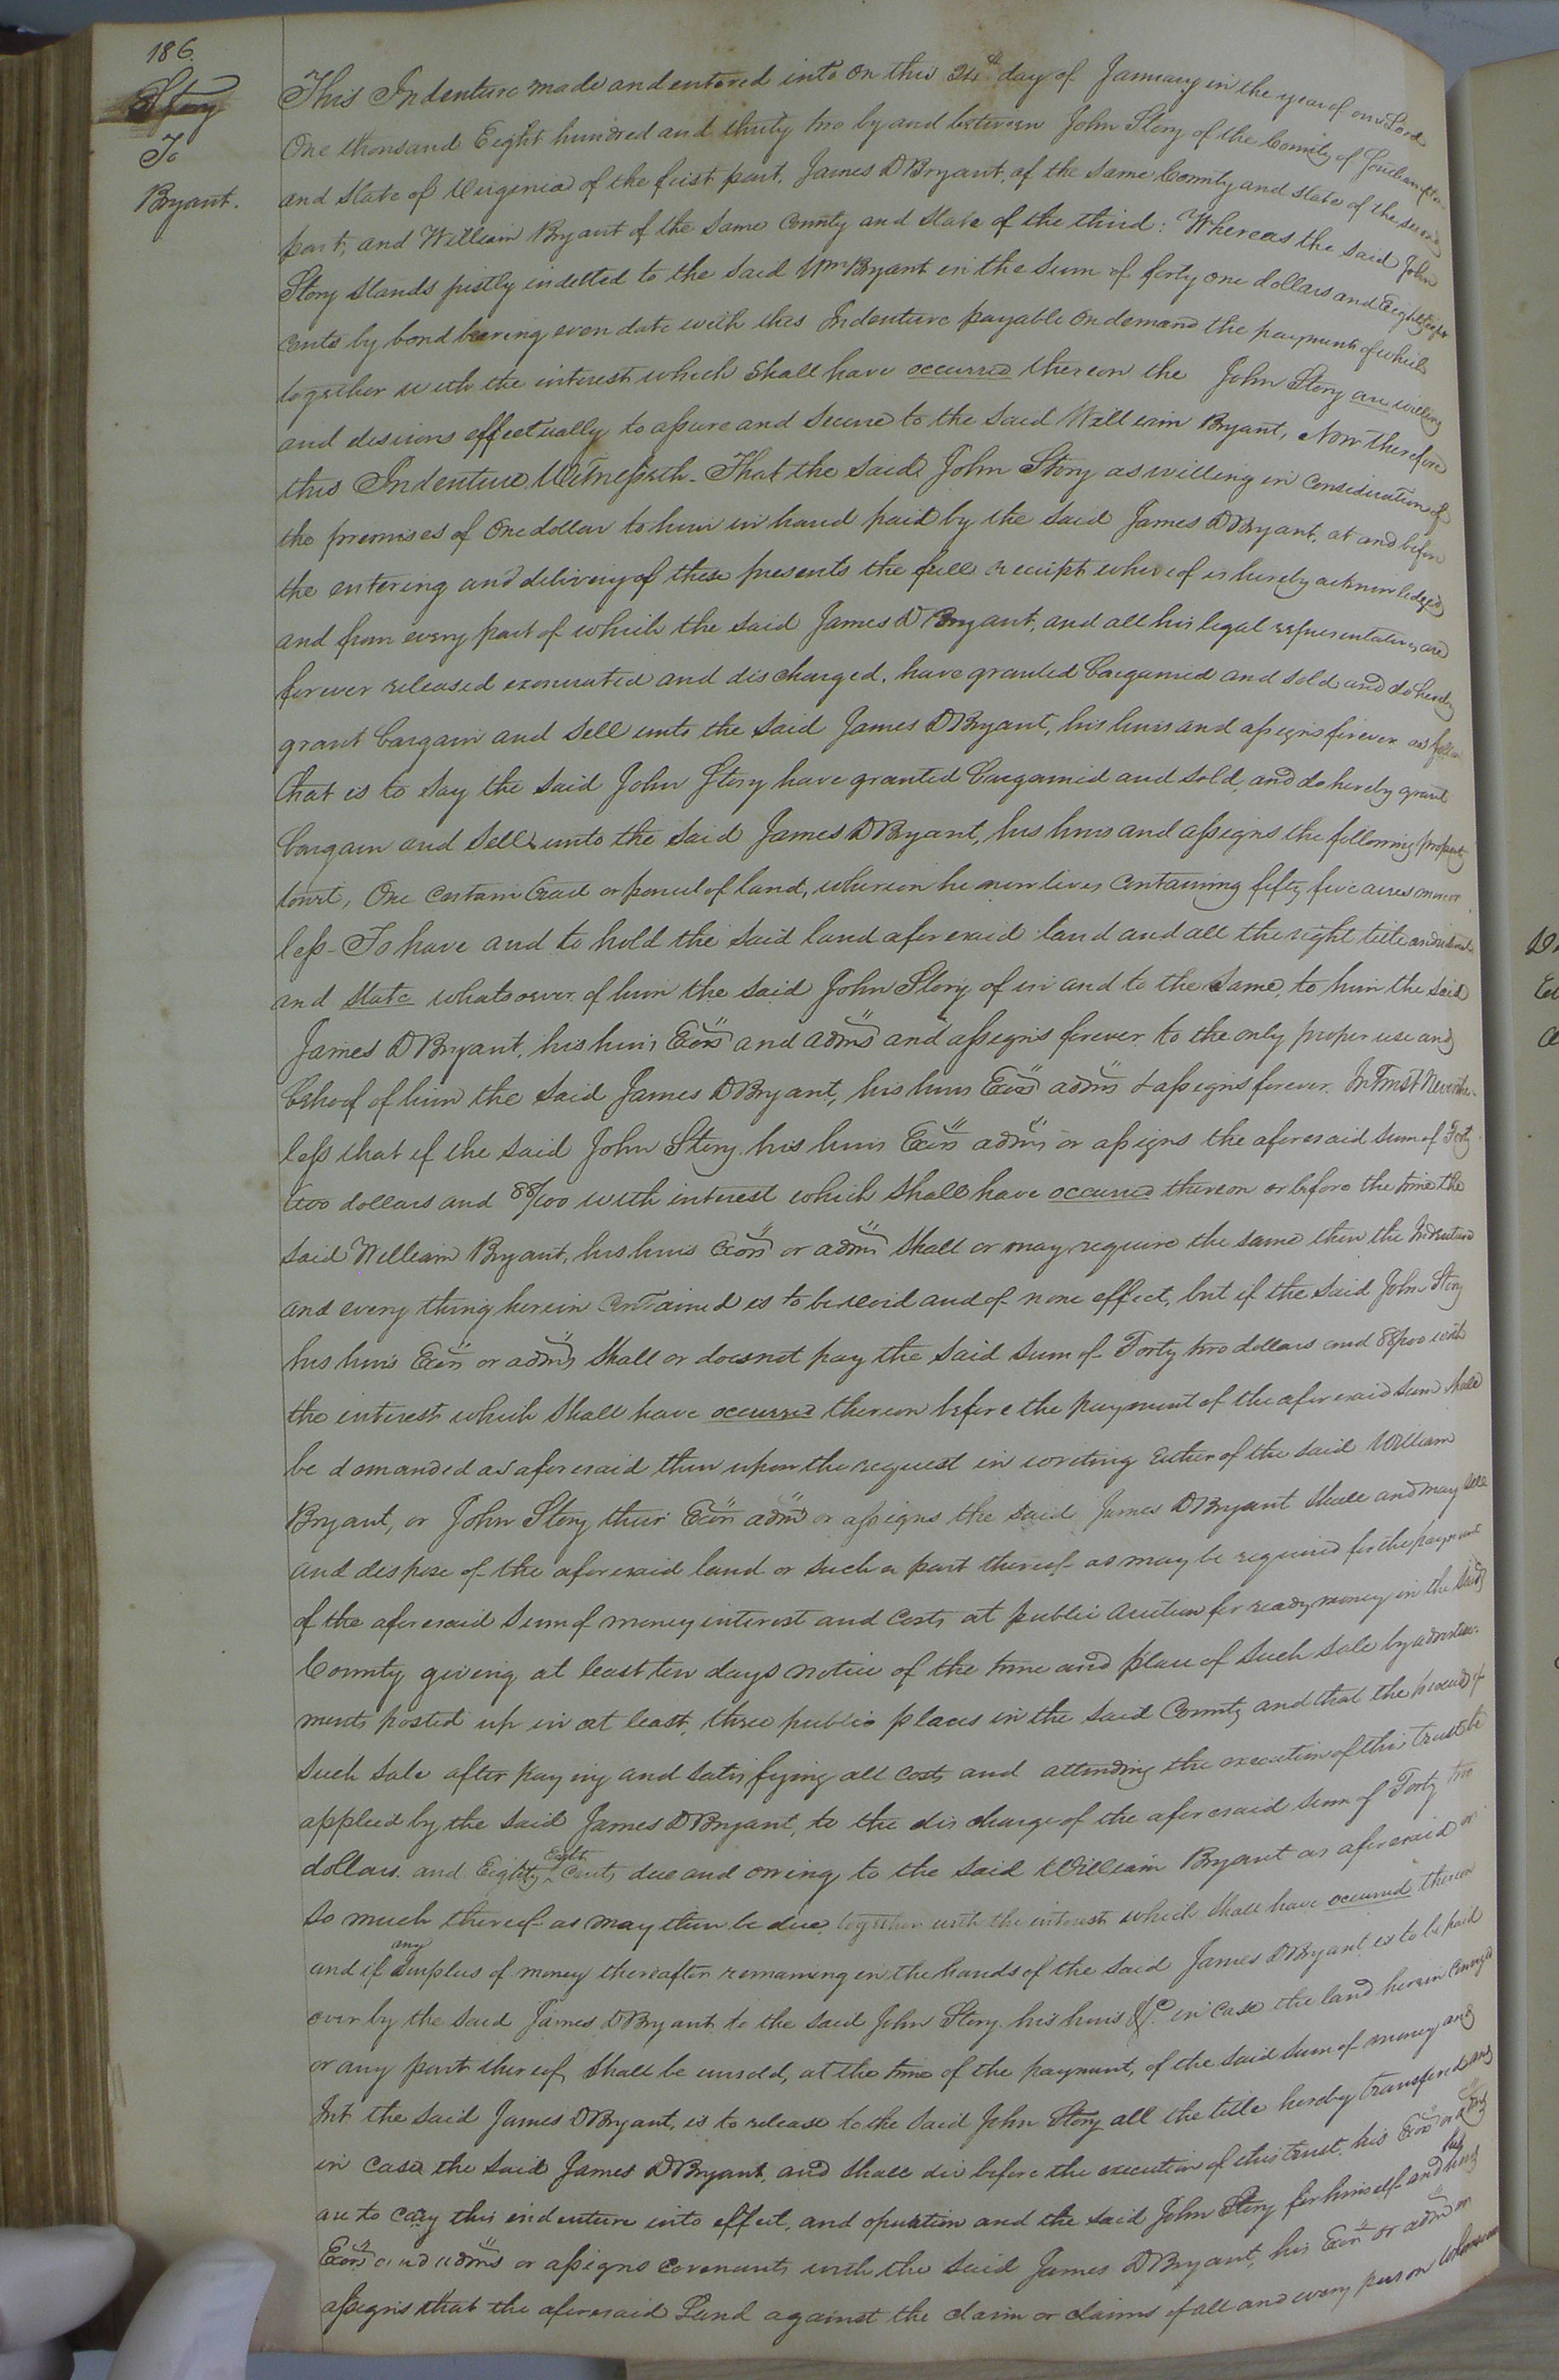 186.
Story
To
Bryant.
This Indenture made and entered into on this 24th day of January in the year of our Lord
One thousand Eight hundred and thirty two by and between John Story of the County of Southampton
and State of Virginia of the first part, James D Bryant, of the same County and state of the second
part, and William Bryant of the same County and State of the third: Whereas the said John
Story stands justly indetted to the said Wm Bryant in the sum of forty one dollars and Eighty eight
cents by bond bearing even date with this Indenture payable on demand the payment of which
together with the interest which shall have occurred thereon the John Story are willing
and desirous effectually to assure and secure to the said William Bryant, Now therefore
this Indenture Witnesseth. That the said John Story as willing in consideration of
the premises of One dollar to him in hand paid by the said James D Bryant, at and before
the entering and delivery of these presents the full receipt whereof is hereby acknowledged
and from every part of which the said James D Bryant, and all his legal representatives are
forever released exonerated and discharged, have granted bargained and sold and do hereby
grant bargain and sell unto the said James D Bryant, his heirs and assigns forever as follow
that is to say the said John Story have granted bargained and sold, and do hereby grant
bargain and sell unto the said James D Bryant, his heirs and assigns the following property
towit, One certain tract or parcel of land, whereon he now lives containing fifty five acres more or
less - To have and to hold the said land aforesaid land and all the right title and interest
and state whatsoever of him the said John Story of in and to the same, to him the said
James D Bryant, his heirs Exors and admrs and assigns forever to the only proper use and
behoof of him the said James D Bryant, his heirs Exors admrs & assigns forever. In Trust Neverthe-
less that if the said John Story his heirs Exors admrs or assigns the aforesaid sum of Forty
two dollars and 88/100 with interest which shall have occurred thereon or before the time the
said William Bryant, his heirs Exors or admrs shall or may require the same then the Indenture
and every thing herein contained is to be void and of none effect, but if the said John Story
his heirs Exors or admrs shall or does not pay the said sum of Forty two dollars and 88/100 with
the interest which shall have occurred thereon before the payment of the aforesaid sum shall
be demanded as aforesaid then upon the request in writing either of the said William
Bryant, or John Story their Exors admrs or assigns the said James D Bryant shall and may sell
and dispose of the aforesaid land or such a part thereof as may be required for the payment
of the aforesaid sum of money interest and costs at public auction for ready money in the said
County giving at least ten days notice of the time and place of such sale by advertise-
ments posted up in at least, three public places in the said County and that the proceeds of
such sale after paying and satisfying all costs and attending the execution of this trust be
applied by the said James D Bryant, to the discharge of the aforesaid sum of Forty two
dollars and Eighty Eight cents due and owing to the said William Bryant as aforesaid or
so much thereof as may then be due together with the interest which shall have occurred thereon
and if any surplus of money thereafter remaining in the hands of the said James D Bryant is to be paid
over by the said James D Bryant to the said John Story his heirs &c. in case the land herein conveyed
or any part thereof shall be unsold, at the time of the payment, of the said sum of money and
Int the said James D Bryant, is to release to the said John Story all the title hereby transferred and
in case the said James D Bryant, and shall die before the execution of this trust, his Exors or admrs
are to cary this indenture into effect, and operation and the said John Story for himself and his heirs
Exors and admrs or assigns covenants with the said James D Bryant, his Exors or admrs or
assigns that the aforesaid Land against the claim or claims of all and every person whomsoever